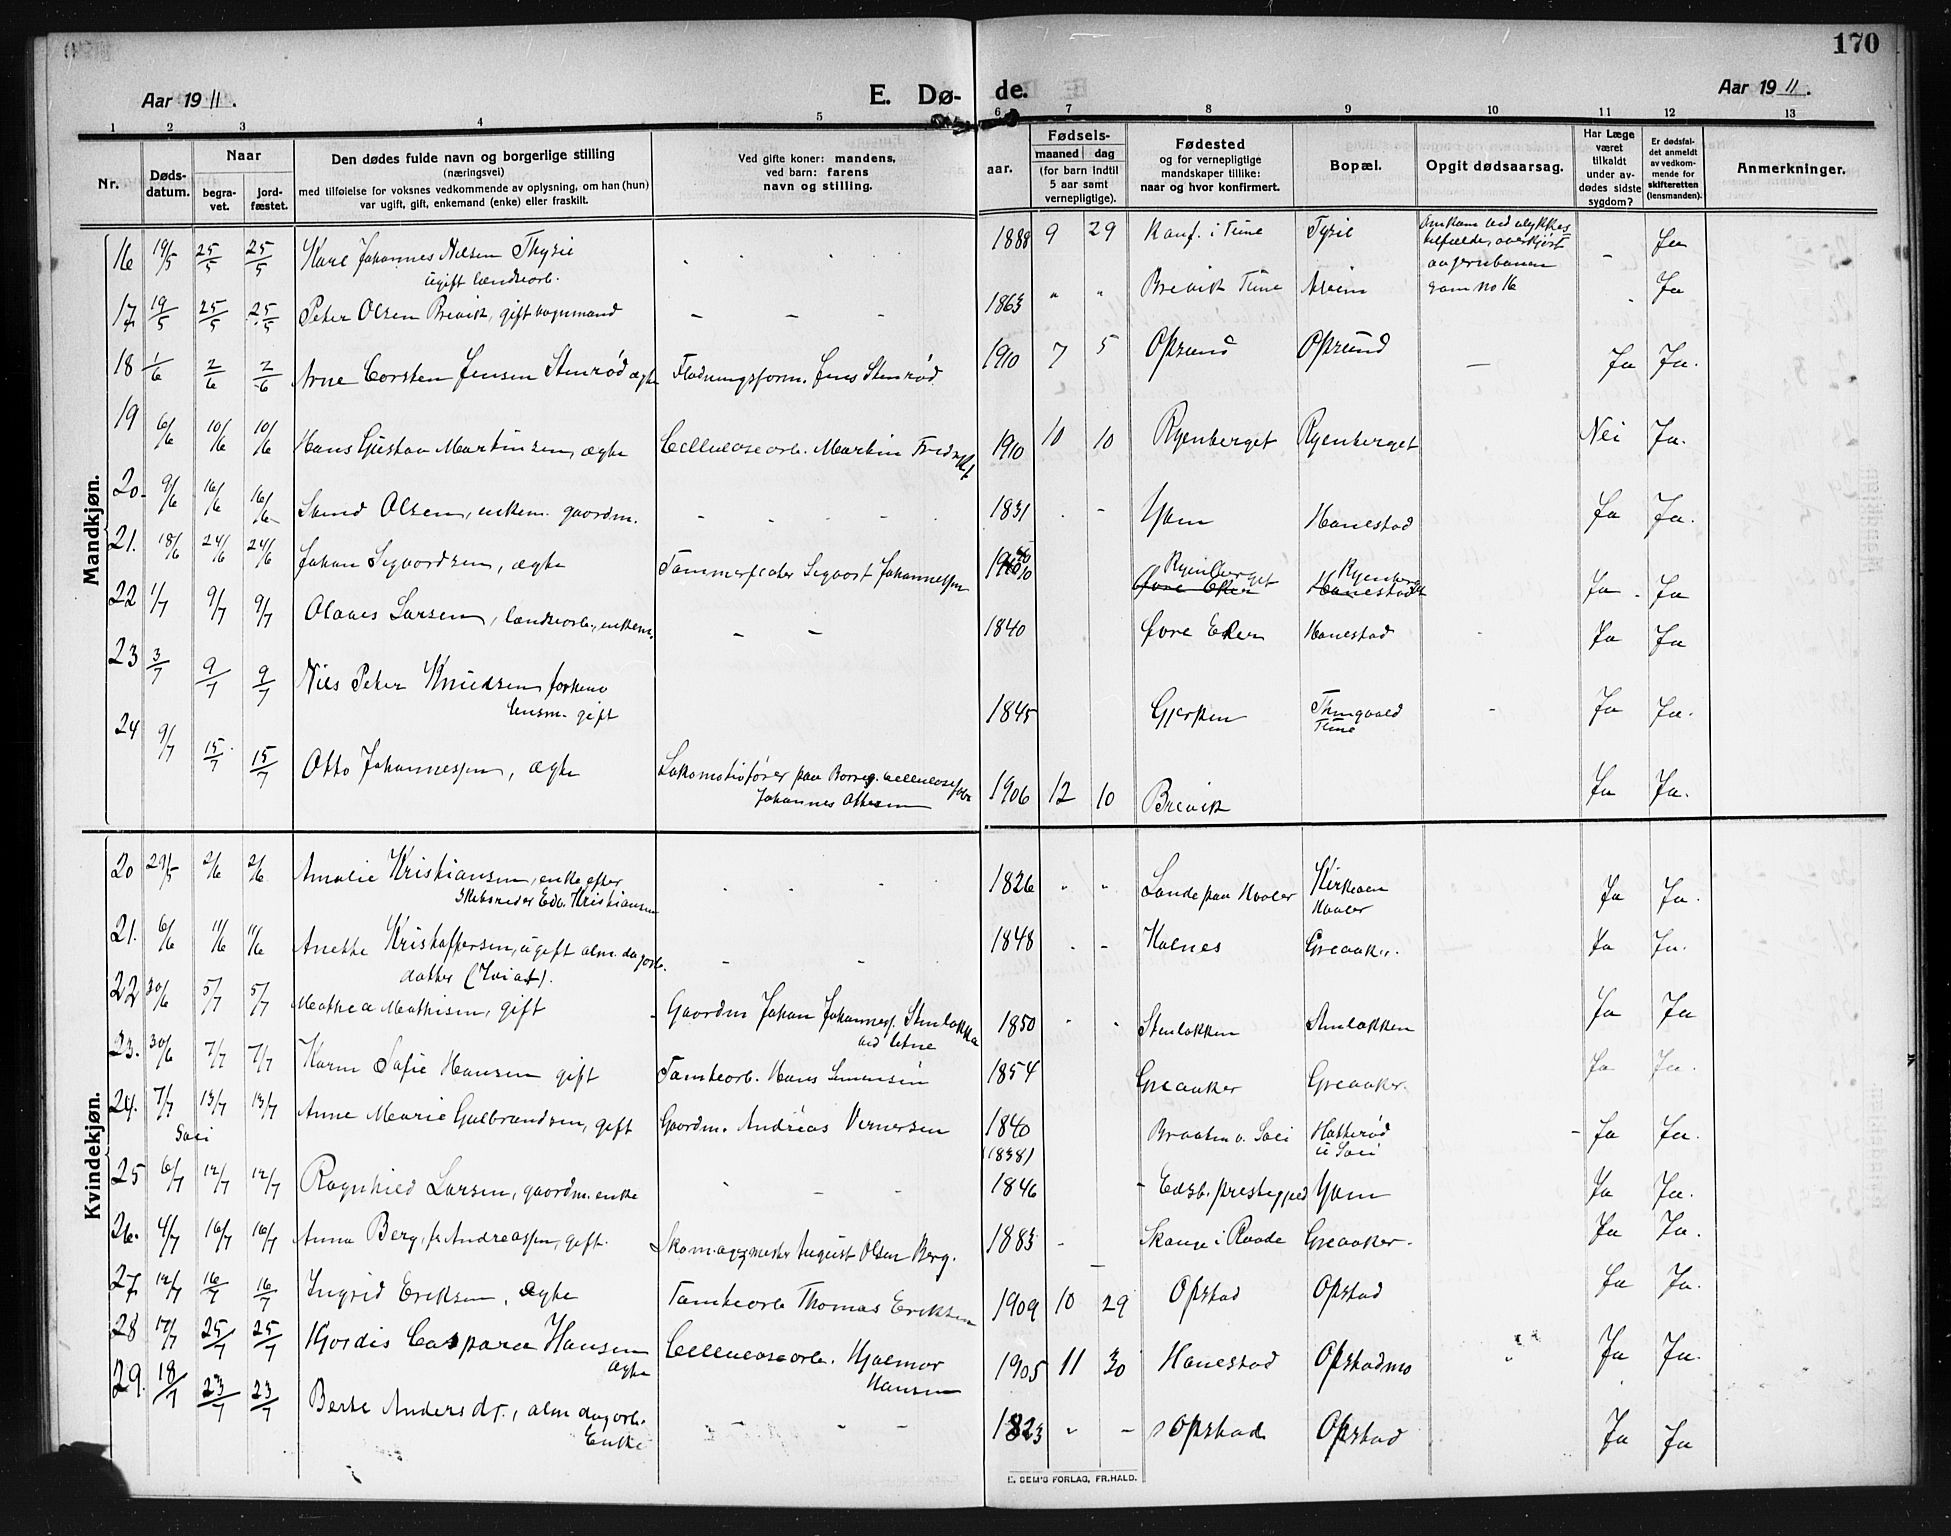 170
Aar 1911.
E. Dø-
de.
Aar 1911.
1 2 3 4 5 6 7 8 9 10 11 12 13
Nr.
Døds-
datum.
Naar
begra-
vet.
jord-
fæstet.
Den dødes fulde navn og borgerlige stilling
(næringsvei)
med tilføielse for voksnes vedkommende av oplysning, om han (hun)
var ugift, gift, enkemand (enke) eller fraskilt.
Ved gifte koner: mandens,
ved barn: farens
navn og stilling.
aar.
Fødsels-
maaned dag
(for barn indtil
5 aar samt
vernepligtige).
Fødested
og for vernepligtige
mandskaper tillike:
naar og hvor konfirmert.
Bopæl.
Opgit dødsaarsag.
Har Læge
været
tilkaldt
under av-
dødes sidste
sygdom?
Er dødsfal-
det anmeldt
av vedkom-
mende for
skifteretten
(lensmanden).
Anmerkninger.
Mandkjøn.
16 19/5 25/5 25/5 Karl Johannes Nilsen Thysie 1888 9 29 Konf. i Tune Tysie Omkom ved ulykkes- - Ja
ugift landearb. tilfælde, overkjørt
av jernbanen
17 19/5 25/5 25/5 Peter Olsen Brevik, gift vognmand - - - 1863 " " Brevik Tune som no 16 Ja
18 1/6 2/6 2/6 Arne Torsten Jensen Stenrød ægte Flødningsform. Jens Stenrød. 1910 7 5 Opsund Opsund - Ja Ja.
19 6/6 10/6 10/6 Hans Gustav Martinsen, ægte Cellulosearb. Martin 1910 10 10 Ryenberget Ryenberget Nei Ja.
20. 9/6 16/6 16/6 Olsen, enkem. gaardm. - - - 1831 . - Yven Hanestad Ja Ja.
21. 18/6 24/6 24/6 Johan Sigvardsen, ægte Sigvart Johannessen 1910 Ryenberget Ryenberget Ja. Ja
Øvre Eker Hanestad
22 1/7 9/7 9/7 Olaves Larsen, landearb., enkem. - - 1840 Øvre Eker Hanestad Ja Ja
23 3/7 9/7 9/7 Nils Peter Knudsen forhenv 1845 Gjerpen Thingvold - Ja Ja.
lensm. gift Tune
24 9/7 15/7 15/7 Otto Johannessen, ægte Lokomotivfører paa Borreg. cellulosefabr 1906 12 10 Brevik Ja Ja.
Johannes Ottesen
Kvindekjøn.
20 29/5 2/6 2/6 Amalie Kristiansen, enke efter 1826 " " Lande paa Hvaler Kirkeøen Ja Ja.
Skibsreder Edv. Kristiansen Hvaler
21. 6/6 11/6 11/6 Anette Kristoffersen, ugift alm. dagarb. - - 1848 . - Kolnes Greaaker. Ja Ja.
datter
22 30/6 5/7 5/7 Mathea Mathisen, gift Gaardm Johan Johanness. Stenløkka 1850 Stenløkken Stenløkken Ja Ja
23. 30/6 7/7 7/7 Karen Sofie Hansen gift Tomtearb. Hans Simensen 1854 Greaaker Greaaker. Ja Ja.
24. 7/7 13/7 13/7 Anne Marie Gulbrandsen, gift Gaardm. Andréas Vernersen 1840 Braaten u. Soli Hatterød - Ja Ja.
Soli (1838) u Soli
25 6/7 12/7 12/7 Ragnhild Larsen, gaardm. enke - - 1846 - Eidsb. prestegjeld Yven Ja Ja.
26. 4/7 16/7 16/7 Anna Berg, f. Andreassen, gift. Skomagermester August Olsen Berg. 1883 - Skauge i Raade Greaaker. Ja Ja.
27 12/7 16/7 16/7 Ingrid Eriksen, ægte Tomtearb Thomas Eriksen 1909 10 29 Opstad Opstad Ja Ja.
28 17/7 25/7 25/7 Hjordis Caspara Hansen Cellulosearb. Hjalmar 1905 11 30 Hanestad Opstadmo " Ja Ja.
ægte Hansen
29. 18/7 23/7 23/7 Berte Andersdt., alm dagarb. - - - 1823 " - Opstad Opstad Ja Ja
Enke
E. SEM'S FORLAG, FR.HALD.